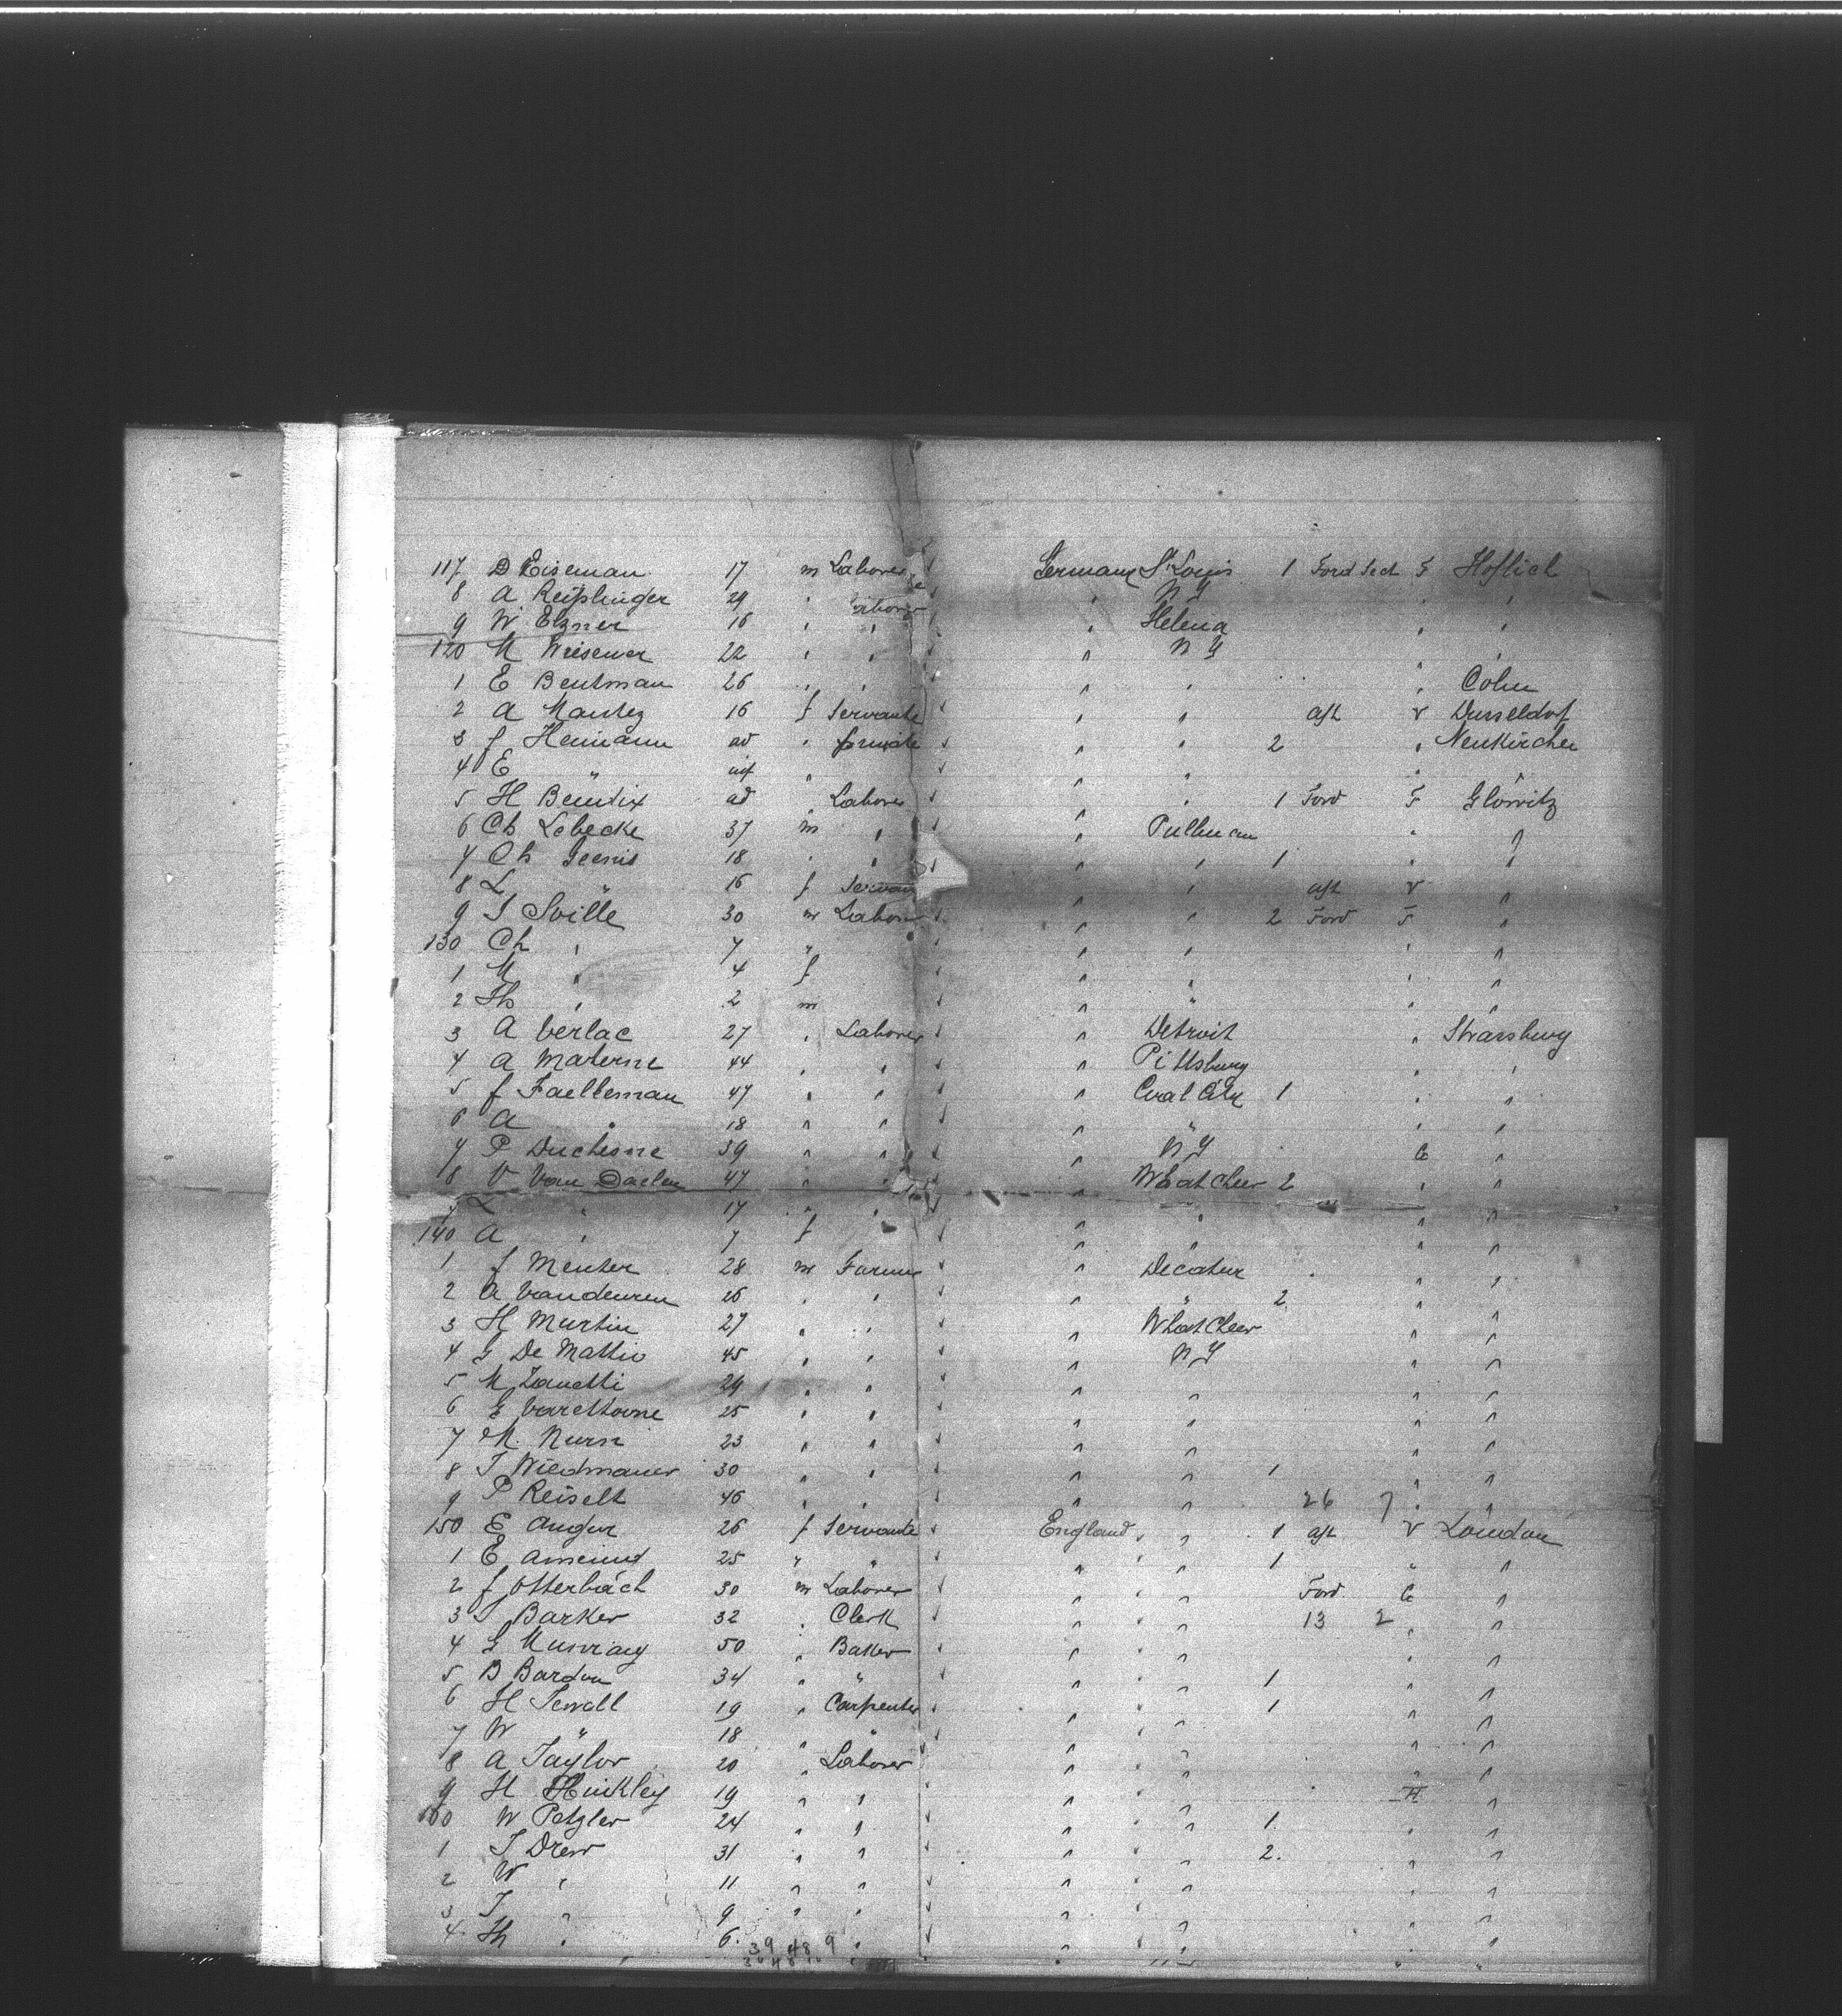 117 D Eiseman 17 m Laborer Germany St Louis 1 Ford Sect F Hoflich
8 A Reiplinger 29 " " N Y " "
9 W Elzner 16 " " " Helena " "
120 M Wiesener 22 " " " N Y " "
1 E Bentman 26 " " " " " Coln
2 A Mantez 16 f Servante " " aft V Dusseldorf
3 J Heimann ad " private " " 2 " Neukirchen
4 E " inf " " " "
5 H Bendix ad " Laborer " " 1 Ford F Glowitz
6 Ch Lebecke 37 m " " Pullman " "
7 Ch Geenis 18 " " " " 1 " "
8 L " 16 f Servan " " aft V "
9 J Sville 30 m Labore " " 2 Ford F "
130 Ch " 7 " " " " "
1 M " 4 f " " " "
2 Th " 2 m " " " "
3 A Verlac 27 " Laborer " Detroit " Strassburg
4 A Materne 44 " " " Pittsburg " "
5 J Faelleman 47 " " " Coal City 1 " "
6 A " 18 " " " " " "
7 P Duchesne 39 " " " N Y C "
8 V Van Daelen 47 " " " What Cheer 2 " "
9 L " 17 " " " " " "
140 A " 7 f " " " "
1 J Menter 28 m Farmer " Decatur " "
2 A Vandeuren 26 " " " " 2 " "
3 H Murtin 27 " " " What Cheer " "
4 G De Mattio 45 " " " N Y " "
5 M Zanetti 24 " " " " " "
6 G Varettorne 25 " " " " " "
7 M. Nurn 23 " " " " " "
8 J Wiedmauer 30 " " " " 1 " "
9 P Reiselt 46 " " " " 26 7 " "
150 E Angur 26 f Servante England " " 1 aft V London
1 E Ameund 25 " " " " " 1 " "
2 J Otterbach 30 m Laborer " " " Ford C "
3 J Barker 32 " Clerk " " " 13 2 " "
4 G Murray 50 " Baker " " " " "
5 B Bardon 34 " " " " " 1 " "
6 H Sewall 19 " Carpenter " " " 1 " "
7 W " 18 " " " " " " "
8 A Taylor 20 " Laborer " " " " "
9 H Hinkley 19 " " " " " H "
160 W Petzler 24 " " " " " 1 " "
1 J Drew 31 " " " " " 2. " "
2 W " 11 " " " " " " "
3 J " 9 " " " " " " "
4 Th " 6 " " " " " "
39 48 9